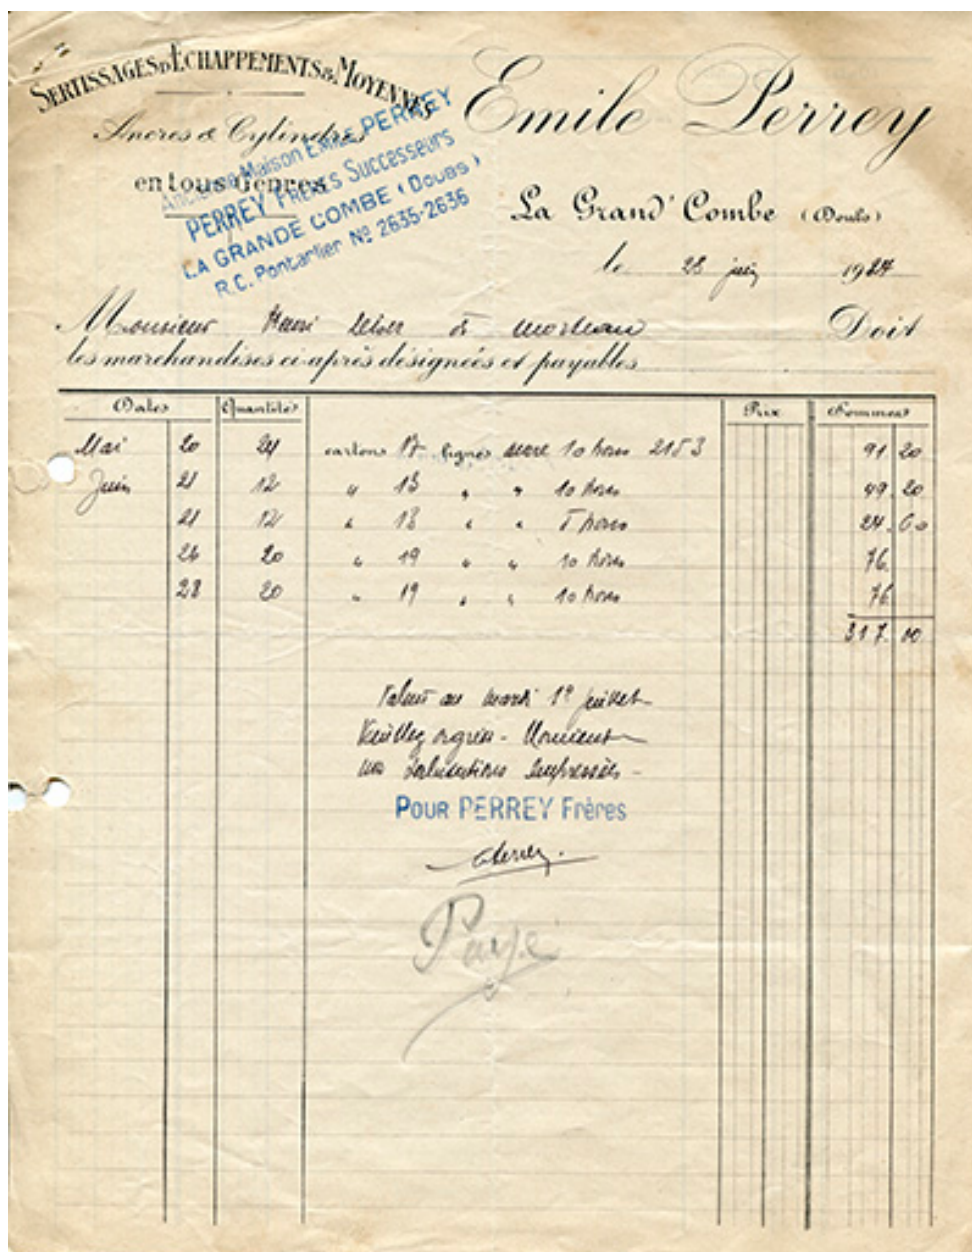 SERTISSAGES D'ÉCHAPPEMENTS & MOYENNES
Ancres & Cylindres
en tous Genres
Emile Perrey
Ancienne Maison EMILE PERREY
PERREY FRÈRES Successeurs
LA GRANDE COMBE (Doubs)
R.C. Pontarlier Nº 2635-2636
La Grand' Combe (Doubs)
le 28 juin 1924
Monsieur Henri à Morteau Doit
les marchandises ci-après désignées et payables
Dates Quantités Prix Sommes
Mai 20 24 cartons 17 lignes ancre 10 trous 2153 91 20
Juin 21 12 " 18 " " 10 trous 49. 20
21 12 " 18 " " 5 trous 24. 60
26 20 " 19 " " 10 trous 76.
28 20 " 19 " " 10 trous 76
317. 00
Valeur au mardi 1º juillet
Veuillez agréer - Monsieur
nos salutations empressées -
POUR PERREY Frères
Perrey.
Payé